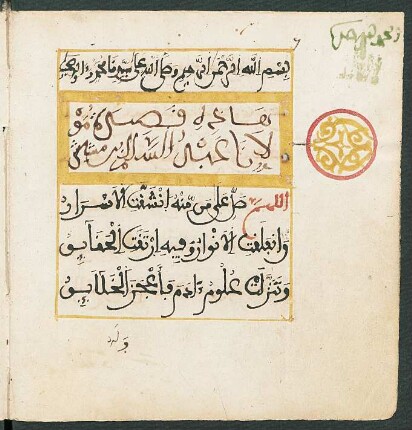 بسم الله الرحمن الرحيم وصلى الله على سيدنا محمد وءاله وصحبه
هاذه صلاة مو
لانا عبد السلام بن مشيش
اللهم صل على من منه انشقت الاسرار
وانفلقت الانوار وفيه ارتقت الحقايق
وتنزلت علوم ءادم فأعجز الخلايق
وله